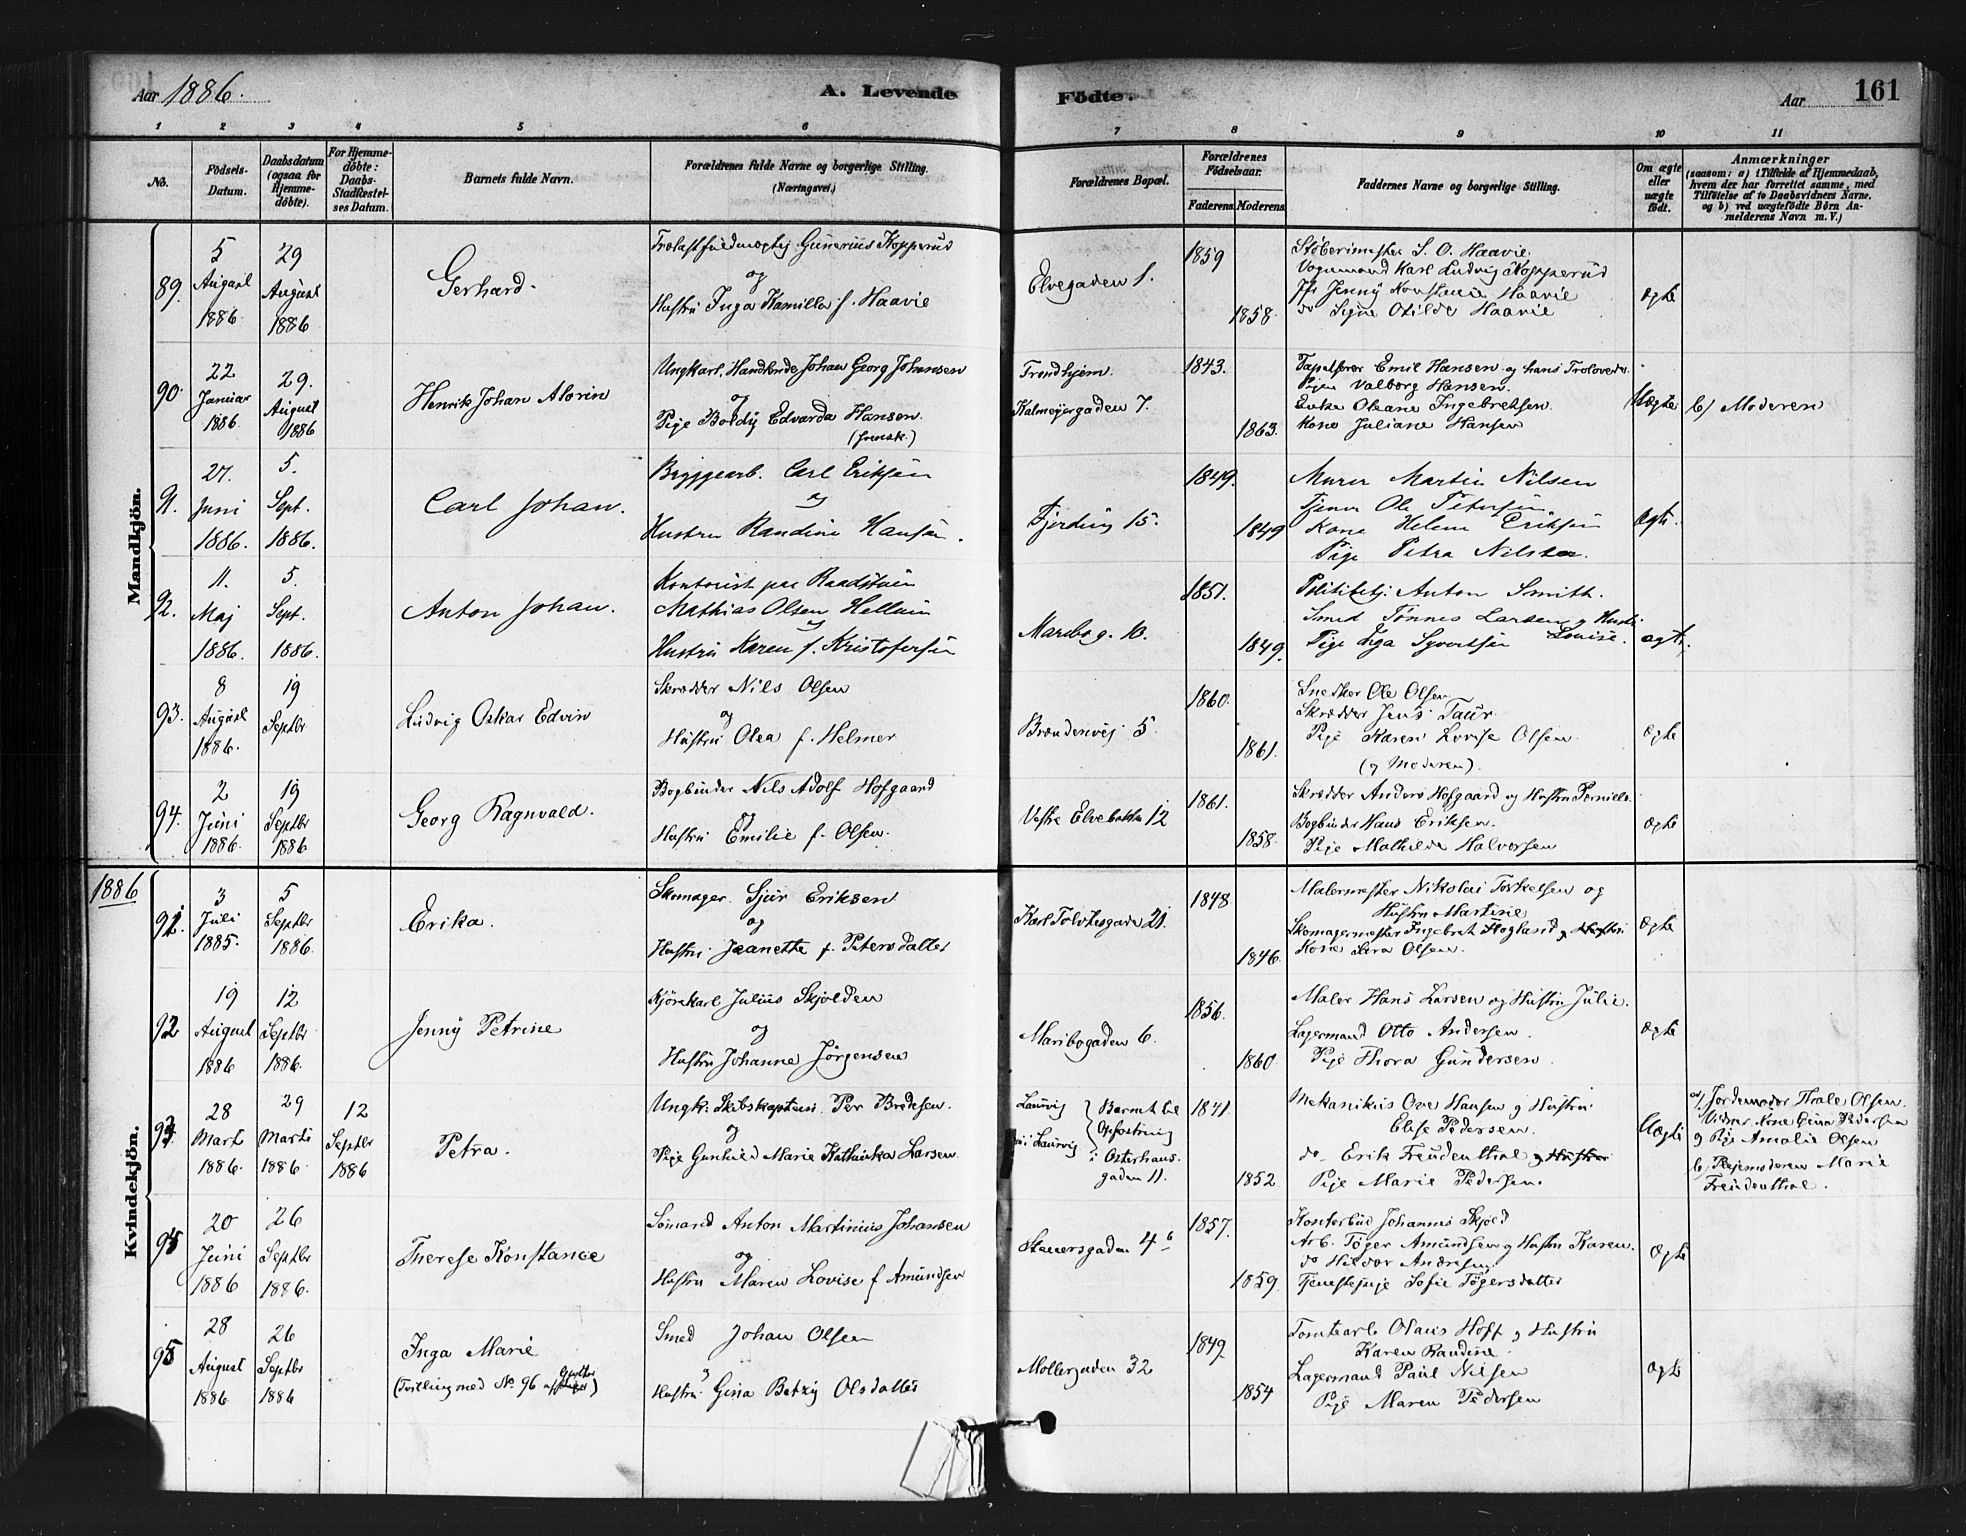 Aar 1886.
A. Levende
Födte.
Aar
161
1 2 3 4 5 6 7 8 9 10 11
No.
Födsels-
Datum.
Daabsdatum
(ogsaa for
Hjemme-
döbte).
For Hjemme-
döbte:
Daabs-
Stadfæstel-
ses Datum.
Barnets fulde Navn.
Forældrenes fulde Navne og borgerlige Stilling.
(Næringsvei.)
Forældrenes Bopæl.
Forældrenes
Födselsaar.
Faderens.
Moderens.
Faddernes Navne og borgerlige Stilling.
Om ægte
eller
uægte
födt.
Anmærkninger
(saasom: a) i Tilfælde af Hjemmedaab,
hvem der har forrettet samme, med
Tilföielse af to Daabsvidners Navne.
og b) ved uægtefödte Börn An-
melderens Navn m. V.)
Mandkjön.
89.
5
August
1886
29
August
1886
Gerhard.
Gunerius Kopperud
og
Hustru Inga Kamilla f. Haavie
Elvegaden 1.
1859
1858.
Støberimester S. O. Haavie
Vognmand Karl Ludvig Kopperud
Jfr Jenny Konstance Haavie
do Signe Otilde Haavie
Ægte
90.
22
Januar
1886.
29.
August
1886
Henrik Johan Alorin
Ungkarl. Handlende Johan Georg Johansen
og
Pige Boldy Edvarda Hansen.
(svensk.)
Trondhjem.
Kalmeyergaden 7.
1843.
1863.
Emil Hansen og hans Trolovede
Pigen Valborg Hansen.
Enke Oleane Ingebretsen.
Kone Juliane Hansen
Uægte
b) Moderen
91.
27.
Juni
1886.
5.
Sept.
1886.
Carl Johan.
Bryggearb. Carl Eriksen
og
Hustru Randine Hansen.
Fjerding 15.
1849.
1849
Murer Martin Nilsen
Tjener Ole Petersen.
Kone Helene Eriksen
Pige Petra Nilsen.
Ægte.
92.
11.
Maj
1886.
5.
Sept.
1886.
Anton Johan.
Kontorist paa Raadstuen
Mathias Olsen Hellum
og
Hustru Karen f. Kristofersen
Maribog. 10.
1851.
1849.
Politibetj. Anton Smith.
Smed Tønnes Larsen og Hustru
Louise.
Pige Inga Syvertsen
ægte.
93.
8
August
1886.
19
Septbr
Ludvig Oskar Edvin
Skrædder Nils Olsen
og
Hustru Olea f. Helmer
Brændenvej 5.
1860.
1861.
Snedker Ole Olsen
Skrædder Jens Taur.
Pige Karen Lovise Olsen.
(og Moderen).
Ægte
94.
2
Juni
1886.
19
Septbr
1886
Georg Ragnvald.
Bogbinder Nils Adolf Hofgaard
og
Hustru Emilie f. Olsen.
Vestre Elvebakke 12
1861.
1858.
Skrædder Anders Hofgaard og Hustru Pernille.
Bogbinder Hans Eriksen.
Pige Mathilde Halvorsen
Ægte
1886
Kvindekjön.
91.
3
Juli
1885.
5
Septbr
1886.
Erika.
Skomager Sjur Eriksen
og
Hustru Jeanette f. Petersdatter
21.
1848
1846.
Malermester Nikolai Torkelsen og
Hustru Martine
Skomagermester Ingebret Hoglund og Hustru
Kone Lera Olsen.
Ægte
92
19
August
1886
12
Septbr
1886.
Jenny Petrine
Kjørekarl Julius Skjolden
og
Hustru Johanne Jørgensen
Maribogaden 6.
1856.
1860.
Maler Hans Larsen og Hustru Julie.
Lagermand Otto Andersen.
Pige Thora Gundersen.
Ægte
93.
28
Marts
1886.
29
Marts
1886.
12
Septbr
1886
Petra.
Ungk. Skibskaptein Per Bredesen.
og
Pige Gunhild Marie Kathinka Larsen
Laurvig
i Laurvig
Barnet til
Opfostring
i Osterhaus-
gaden 11.
1841.
1852
Mekanikus Ove Hansen og Hustru
Elise Pedersen.
do Erik Freudenthal og Hustru
Pige Marie Pedersen.
Uægte
a) Jordemoder Hrale Olsen.
Vidner Kone Gina Pedersen
og Pige Amalie Olsen
b) Plejemoderen Marie
Freudenthal.
95
20
Juni
1886
26
Septbr
1886.
Therese Konstance
Sømand Anton Martinius Johansen
og
Hustru Maren Lovise f Amundsen
Stenersgaden 4 b
1857.
1859.
Kontorbud Johannes Skjold
Arb. Tøger Amundsen og Hustru Karen.
do Hildor Andresen
Tjenestepige Sofie Tøgersdatter
Ægte
95
28
August
1886
26
Septbr
1886
Inga Marie
(Tvilling med No. 96)
Smed Johan Olsen
og
Hustru Gina Betzy Olsdatter
Mollergaden 32
1849.
1854
Tomtearb Olaus Hoff og Hustru
Karen Randine.
Lagermand Paul Nilsen
Pige Maren Pedersen
Ægte